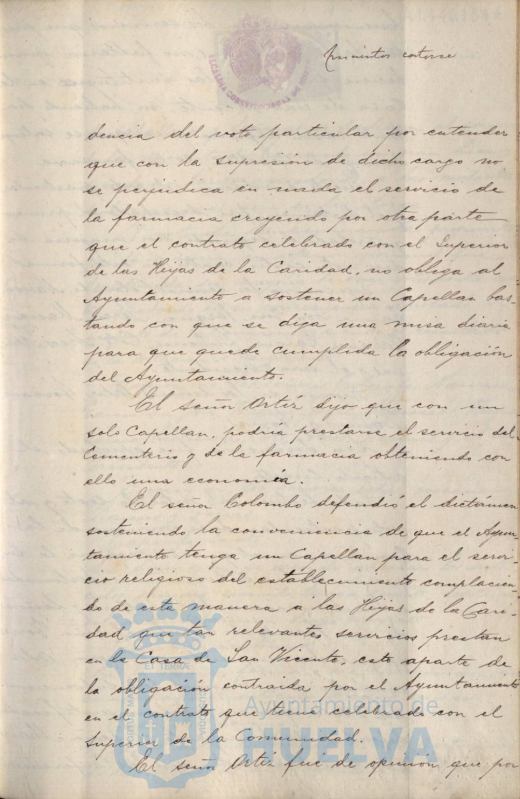 quinientos catorce
dencia del voto particular por entender
que con la supresión de dicho cargo no
se perjudica en nada el servicio de
la farmacia creyendo por otra parte
que el contrato celebrado con el Superior
de las Hijas de la Caridad, no obliga al
Ayuntamiento a sostener un Capellan bas-
tando con que se diga una misa diaria
para que quede cumplida la obligación
del Ayuntamiento.
El señor Ortiz dijo que con un
solo Capellan, podria prestarse el servicio del
Cementerio y de la farmacia obteniendo con
ello una economia.
El señor Colombo defendió el dictámen
sosteniendo la conveniencia de que el Ayun-
tamiento tenga un Capellan para el servi-
cio religioso del establecimiento complacien-
do de esta manera a las Hijas de la Cari-
dad que tan relevantes servicios prestan
en la Casa de San Vicente, esto aparte de
la obligación contraida por el Ayuntamiento
en el contrato que tiene celebrado con el
Superior de la Comunidad.
El señor Ortiz fué de opinión que por
Ayuntamiento de
HUELVA